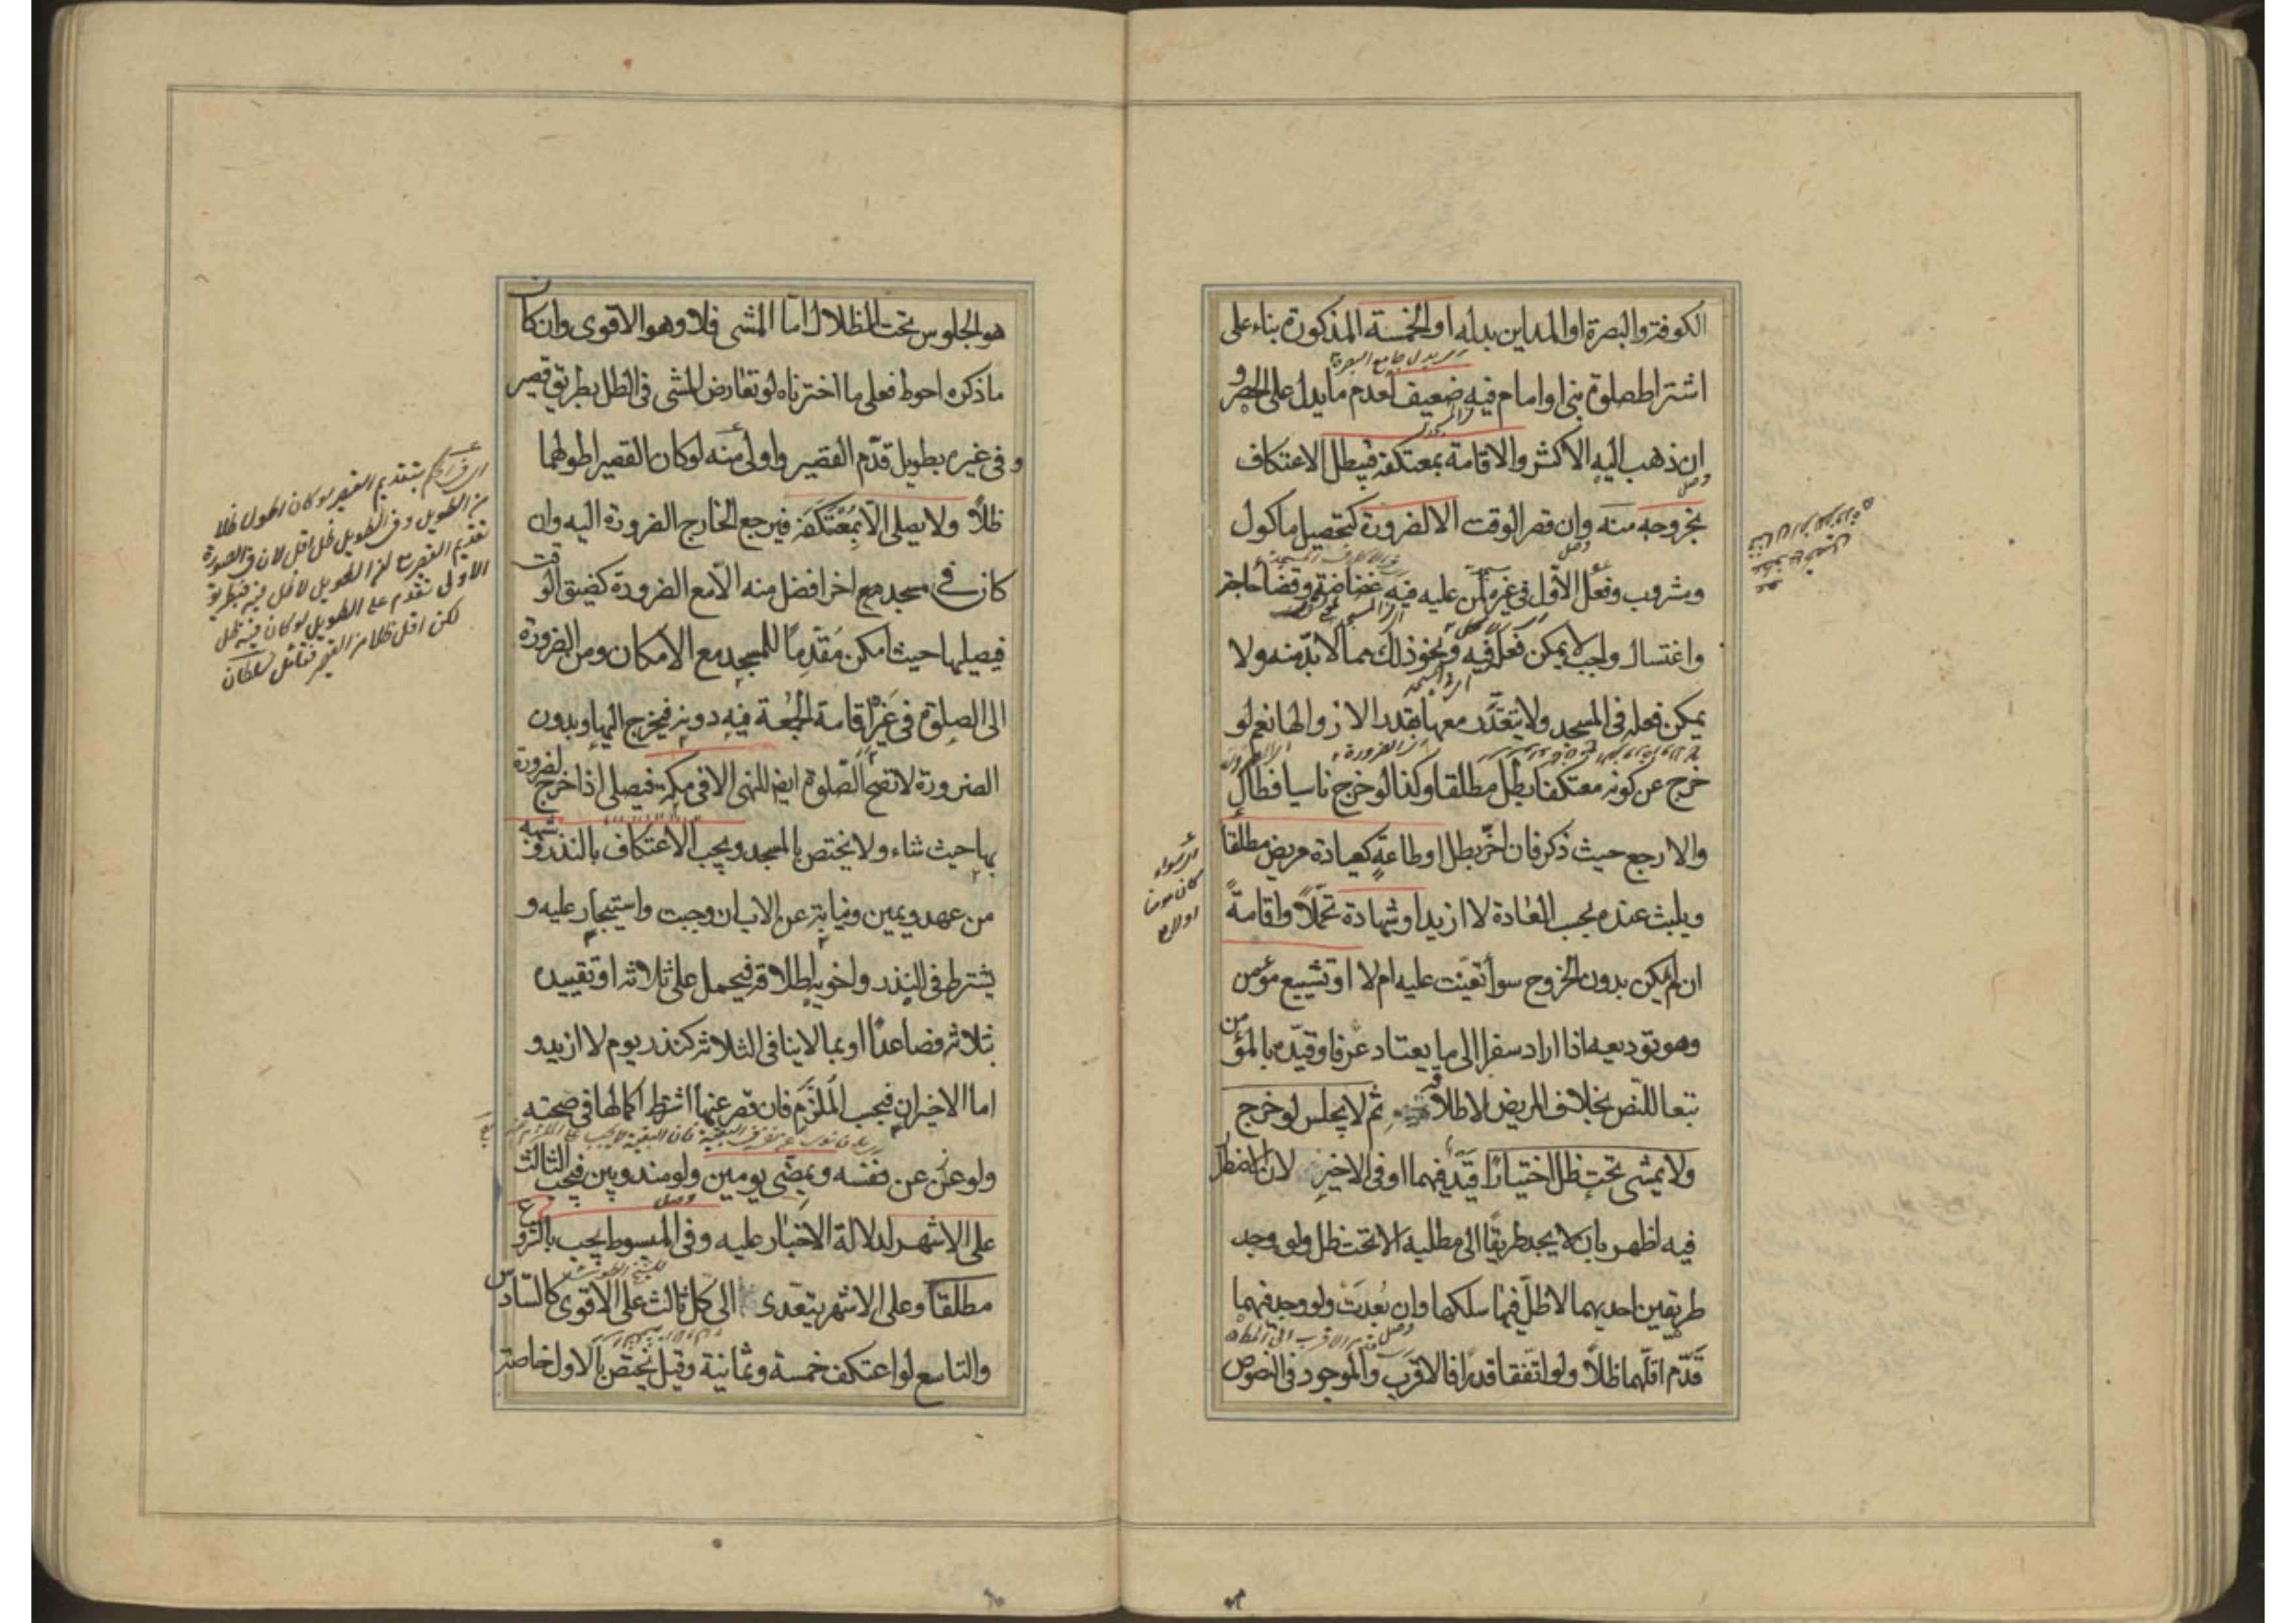 الكوفة والبصرة او المداين بدله او الخمسة المذكورة بناء على
اشتراط صلوة نبى او امام فيه ضعيف لعدم ما يدل على الحصر و
ان ذهب اليه الاكثر والاقامة بمعتكفه فيبطل الاعتكاف
بخروجه منه وان قصر الوقت الا لضرورة كتحصيل ماكول
ومشروب وفعل الاول فى غيره لمن عليه فيه غضاضة وقضا حاجة
واغتسال واجب لا يمكن فعله فيه ونحو ذلك مما لا بد منه ولا
يمكن فعله فى المسجد ولا يتقدر معها بقدر الا زوالها نعم لو
خرج عن كونه معتكفا بطل مطلقا وكذا لو خرج ناسيا فطال
والا رجع حيث ذكر فان اخّر بطل او طاعةٍ كعيادة مريض مطلقاً
ويلبث عنده بحسب العادة لا ازيد او شهادة تحمّلاً واقامةً
ان لم يمكن بدون الخروج سوأ تعيّنت عليه ام لا او تشييع مؤمن
وهو توديعه اذا اراد سفرا الى ما يعتاد عرفا وقيّده بالمؤمن
تبعا للنص بخلاف المريض لاطلاقه ثم لا يجلس لو خرج
ولا يمشى تحت ظل اختيارًا قيد فيهما او فى الاخير لان الاضطرار
فيه اظهر بان لا يجد طريقًا الى مطلبه الا تحت ظل ولو وجد
طريقين احديهما لا ظلّ فيها سلكها وان بُعدَت ولو وجد فيهما
قدّم اقلّهما ظلاً ولو اتفقا قدرًا فالاقرب والموجود فى النصوص
سواء
كان مؤمنا
او لا
هو الجلوس تحت الظلال امّا المشى فلا وهو الاقوى وان كان
ما ذكره احوط فعلى ما اخترناه لو تعارض المشى فى الظل بطريق قصير
و فى غيره بطويل قدّم القصير واولى منه لو كان القصير اطولهما
ظلاً ولا يصلى الا بمُعْتَكَفَه فيرجع الخارج لضرورة اليه وان
كان فى مسجد مع اخر افضل منه الا مع الضرورة كضيق الوقت
فيصليها حيث امكن مُقدّمًا للمسجد مع الامكان ومن الضرورة
الى الصلوة فى غيره اقامة الجمعة فيه دونه فيخرج اليها وبدون
الضرورة لا تصح الصّلوة ايض للنهى الا فى مكة فيصلى اذا خرج لضرورة
بها حيث شاء ولا يختص بالمسجد ويجب الاعتكاف بالنذر وشبهه
من عهد ويمين ونيابة عن الاب ان وجبت واستيجار عليه و
يشترط فى النذر واخويه اطلاقه فيحمل على ثلاثه او تقييده
بثلاثه فصاعدًا او بما لا ينافى الثلاثه كنذر يوم لا ازيد و
اما الاخيران فبحسب الملزم فان قصر عنها اشترط اكمالها فى صحته
ولو عن عن نفسه وبمضى يومين ولو مندوبين فيجب الثالث
على الاشهر لدلالة الاخبار عليه وفى المبسوط يجب بالشروع
مطلقًا وعلى الاشهر يتعدى الى كل ثالث على الاقوى كالسادس
والتاسع لو اعتكف خمسة وثمانية وقيل يختص بالاول خاصة
بتقديم القصير لو كان اطول ظلا
من الطويل وفى الطويل ظل اقل لان فى الصورة
الاولى تقدم على الطويل لو كان فيه ظل
لكن اقل ظلا من القصير فتامل سلطان